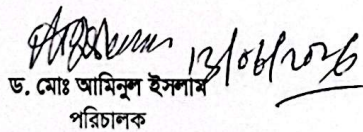 ১৩/০৬/২০২৬
ড. মোঃ আমিনুল ইসলাম
পরিচালক